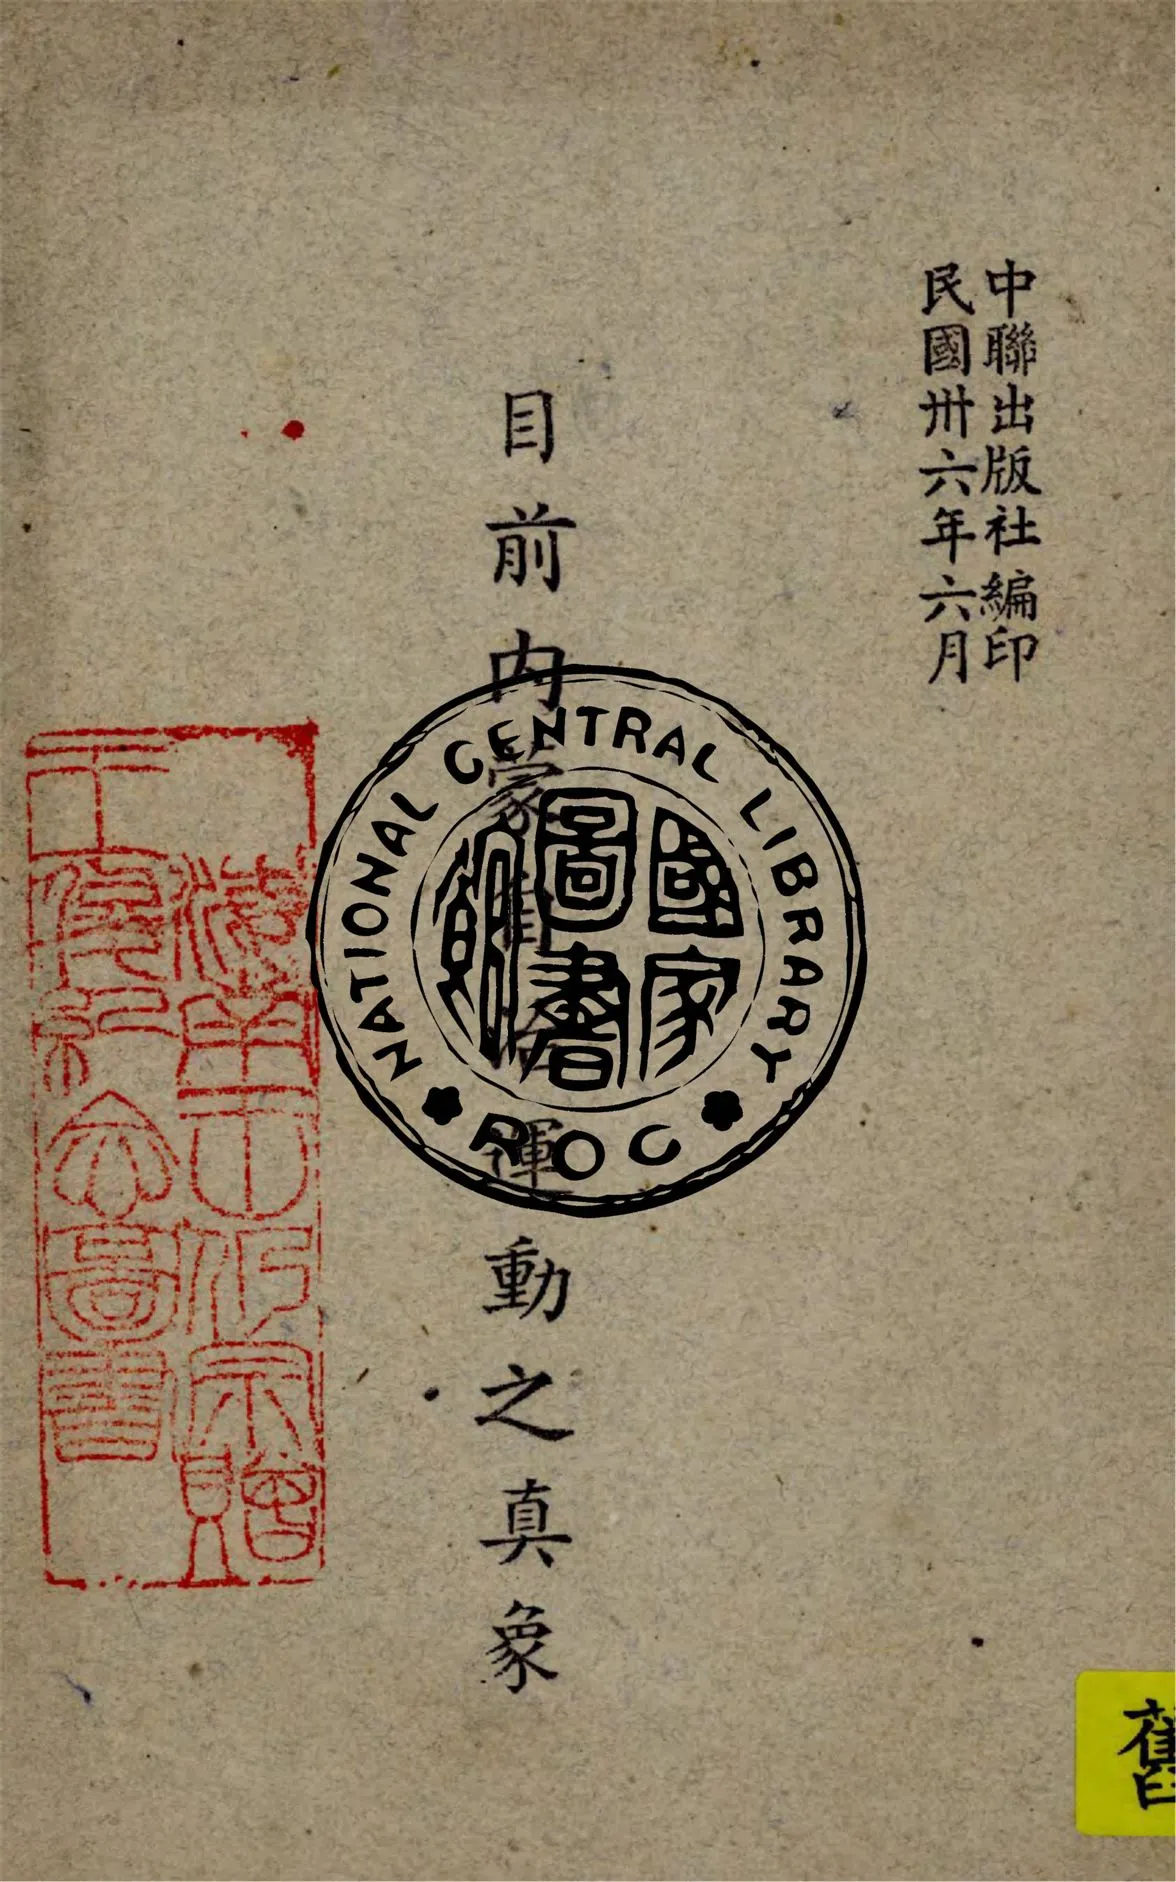 中聯出版社編印
民國卅六年六月
目前內蒙自治運動之真象
NATIONAL CENTRAL LIBRARY
ROC
國家
圖書
館
圖書
舊